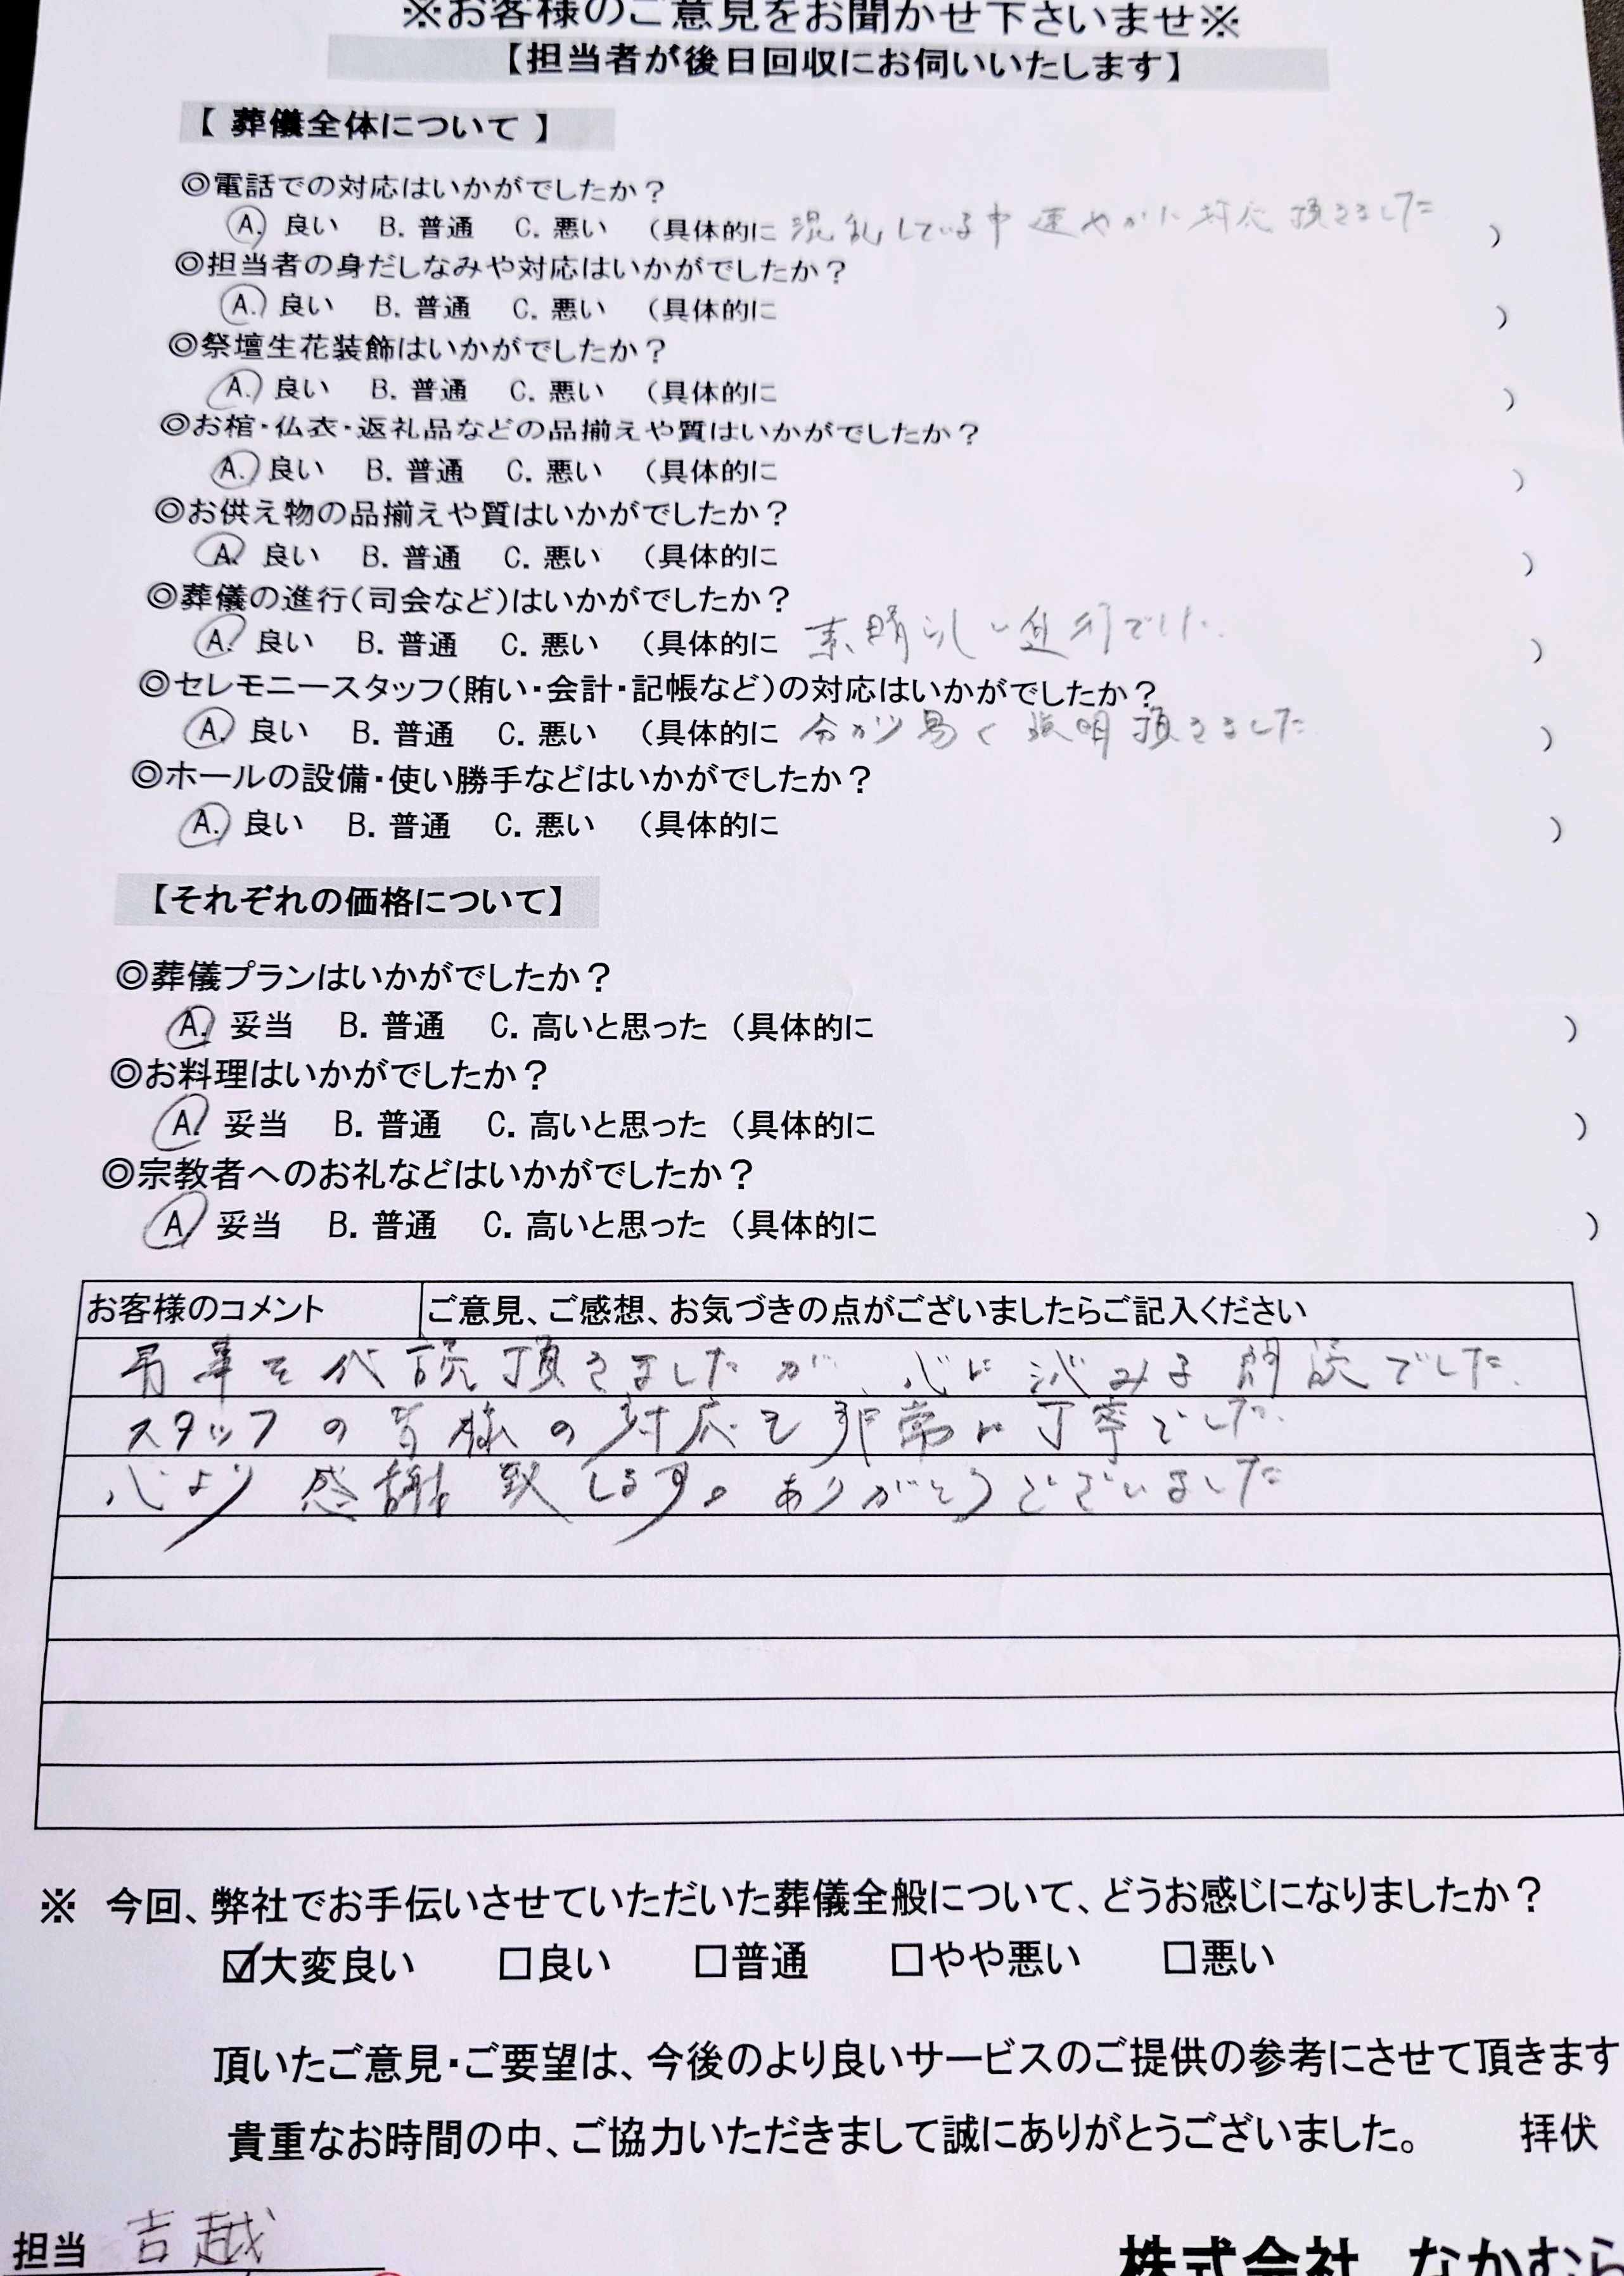 ※お客様のご意見をお聞かせ下さいませ※
【担当者が後日回収にお伺いいたします】
【 葬儀全体について 】
◎電話での対応はいかがでしたか？
A. 良い B. 普通 C. 悪い （具体的に 混乱している中 速やかに対応 頂きました ）
◎担当者の身だしなみや対応はいかがでしたか？
A. 良い B. 普通 C. 悪い （具体的に ）
◎祭壇生花装飾はいかがでしたか？
A. 良い B. 普通 C. 悪い （具体的に ）
◎お棺・仏衣・返礼品などの品揃えや質はいかがでしたか？
A. 良い B. 普通 C. 悪い （具体的に ）
◎お供え物の品揃えや質はいかがでしたか？
A. 良い B. 普通 C. 悪い （具体的に ）
◎葬儀の進行（司会など）はいかがでしたか？
A. 良い B. 普通 C. 悪い （具体的に 素晴らしい進行でした. ）
◎セレモニースタッフ（賄い・会計・記帳など）の対応はいかがでしたか？
A. 良い B. 普通 C. 悪い （具体的に 分かり易く 説明頂きました ）
◎ホールの設備・使い勝手などはいかがでしたか？
A. 良い B. 普通 C. 悪い （具体的に ）
【それぞれの価格について】
◎葬儀プランはいかがでしたか？
A. 妥当 B. 普通 C. 高いと思った （具体的に ）
◎お料理はいかがでしたか？
A. 妥当 B. 普通 C. 高いと思った （具体的に ）
◎宗教者へのお礼などはいかがでしたか？
A. 妥当 B. 普通 C. 高いと思った （具体的に ）
お客様のコメント ご意見、ご感想、お気づきの点がございましたらご記入ください
弔事を代読頂きましたが、心に沁みる朗読でした.
スタッフの皆様の対応も非常に丁寧でした.
心より感謝致します。ありがとうございました
※ 今回、弊社でお手伝いさせていただいた葬儀全般について、どうお感じになりましたか？
☑大変良い □良い □普通 □やや悪い □悪い
頂いたご意見・ご要望は、今後のより良いサービスのご提供の参考にさせて頂きます
貴重なお時間の中、ご協力いただきまして誠にありがとうございました。 拝伏
担当 吉越
株式会社 なかむら